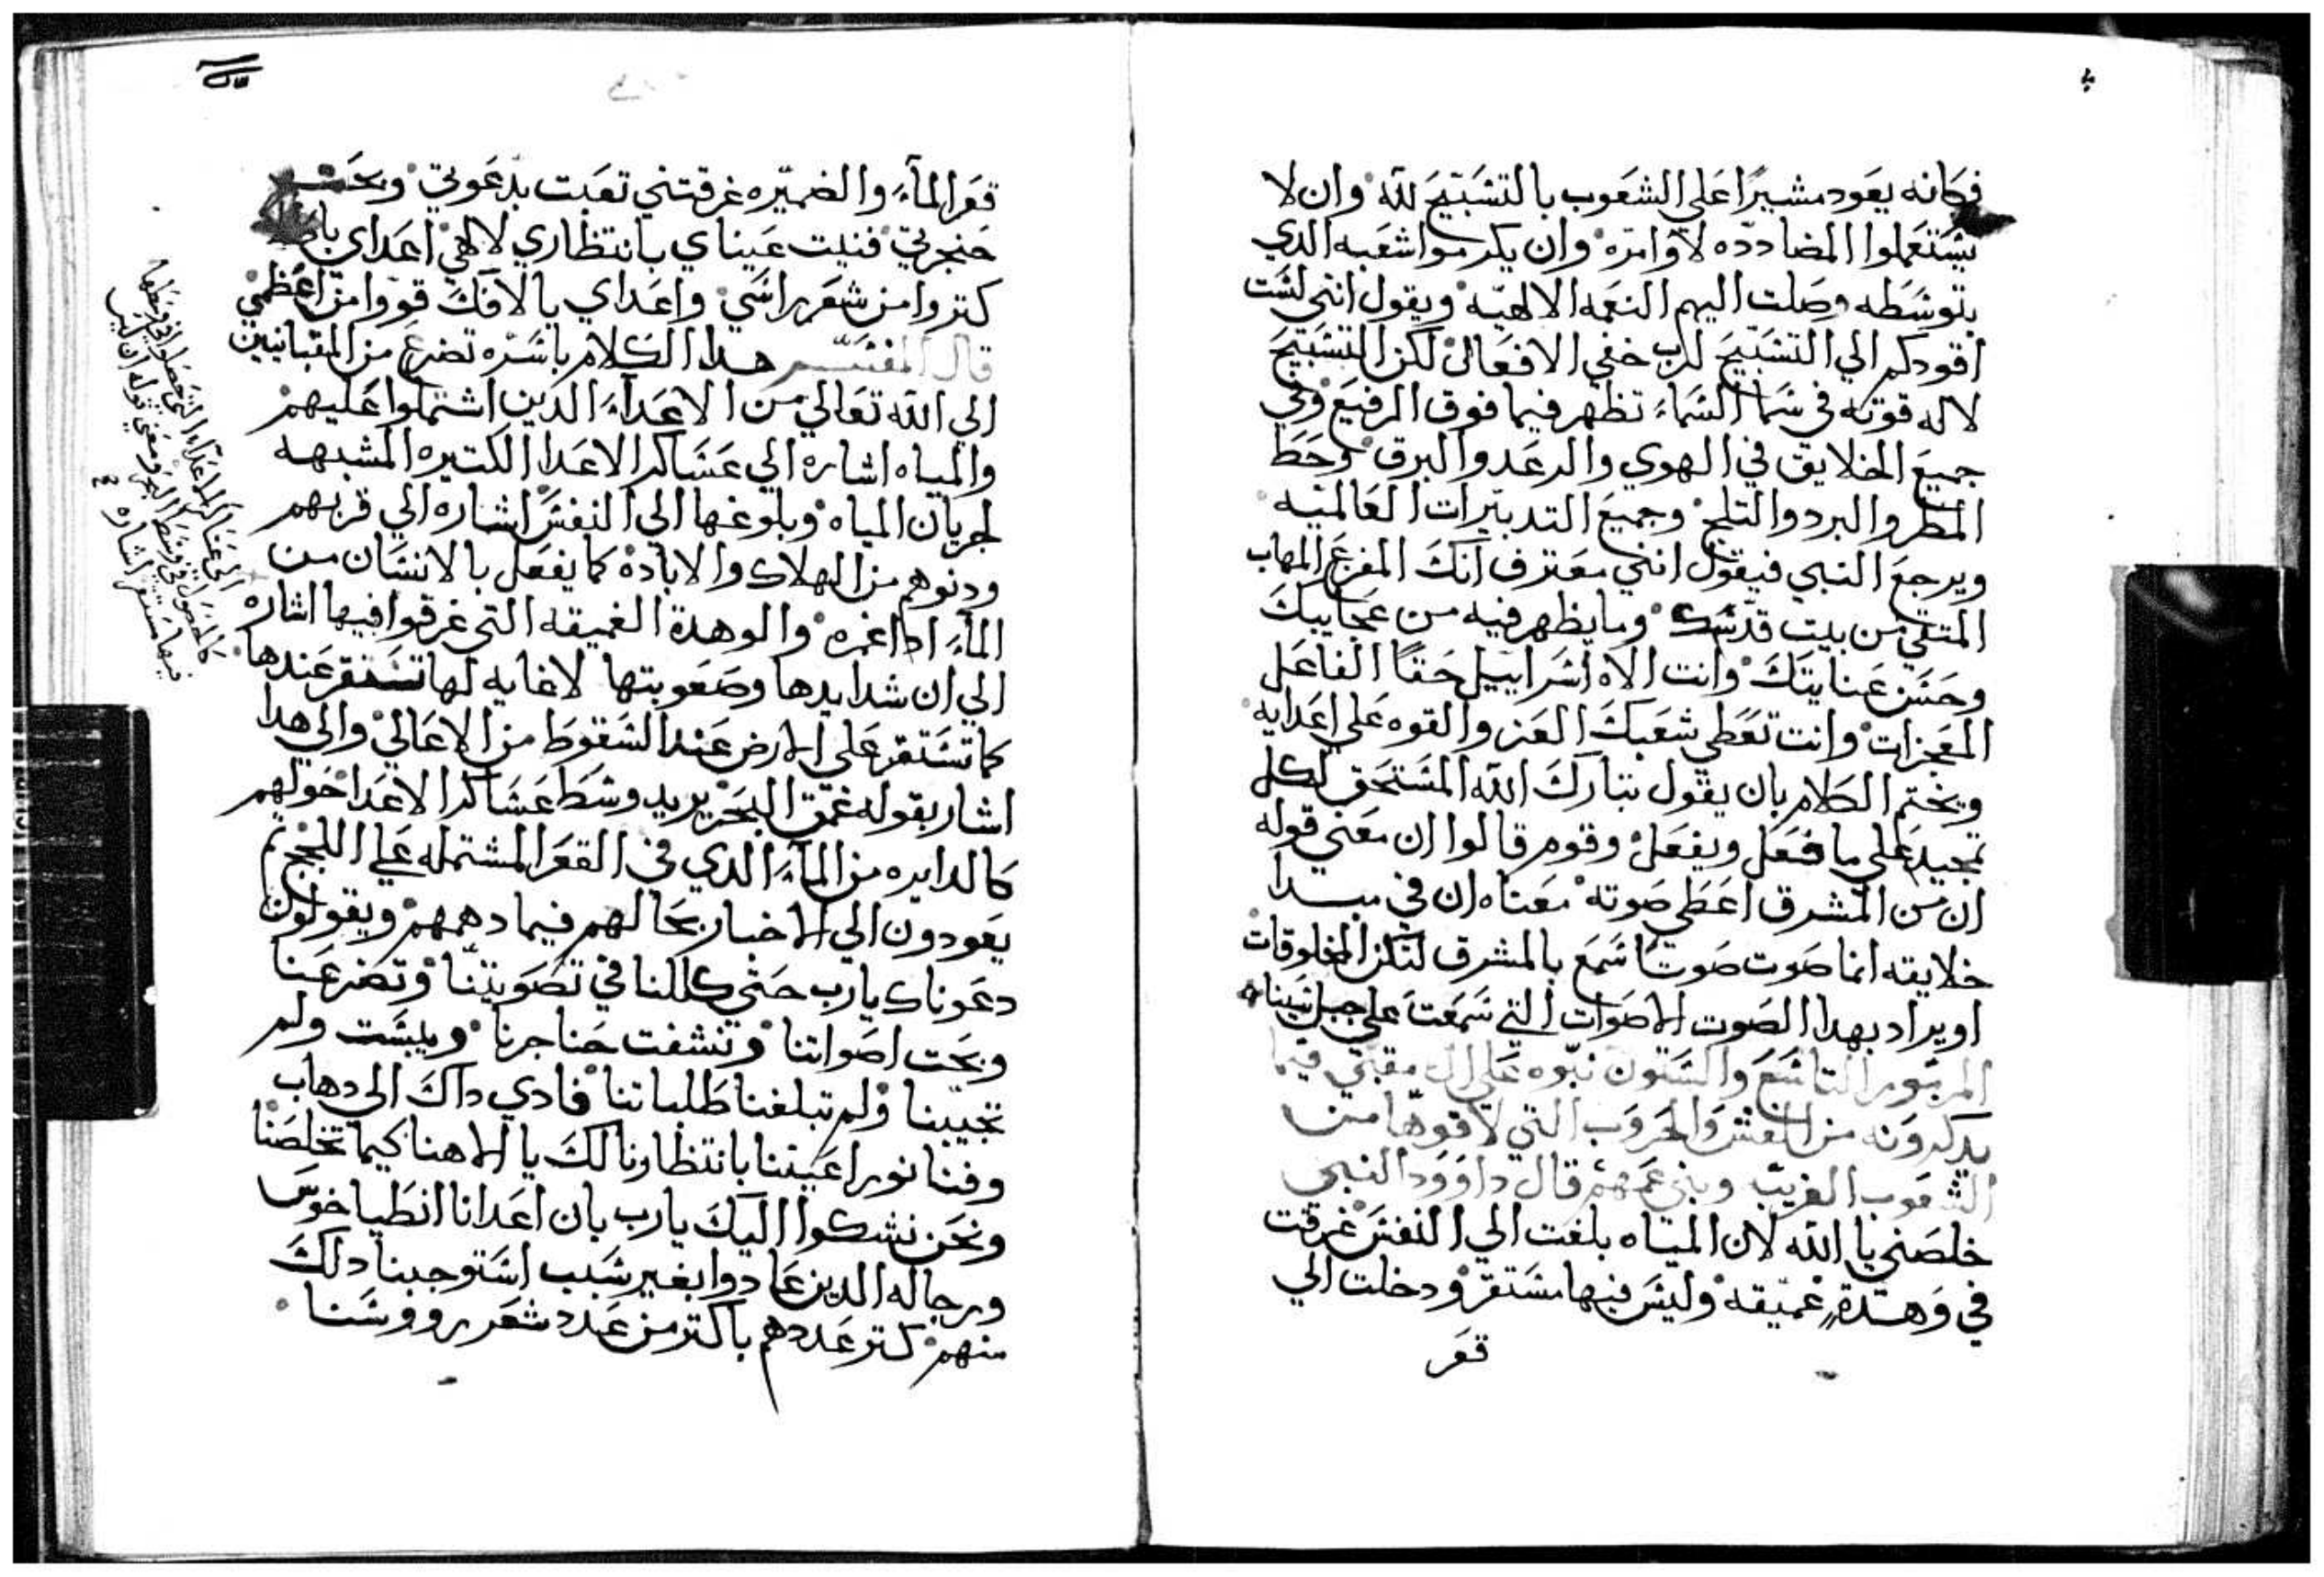 فكانه يعود مشيرًا علي الشعوب بالتسبيح لله وان لا
يستعملوا المضاددّه لاوامره وان يكرموا شعبه الدي
بتوسطه وصلت اليهم النعمه الالاهيّه ويقول انني لست
اقودكم الي التسبيح لرب خفي الافعال لكن التسبيح
لاله قوته في سما السماء تظهر فيما فوق الرفيع وفي
جميع الخلايق في الهوي والرعد والبرق وحط
المطر والبرد والتلج وجميع التدبيرات العالميه
ويرجع النبي فيقول انني معترف انك المفزع المهاب
المتقي من بيت قدسك وما يظهر فيه من عجايبك
وحسن عنايتك وانت الاه اسراييل حقًا الفاعل
المعجزات وانت تعطي شعبك العز والقوه علي اعدايه
ويختم الكلام بان يقول تبارك الله المستحق لكل
تمجيد علي ما فعل ويفعل وقوم قالوا ان معني قوله
ان من المشرق اعطي صوته معناه ان في مبدا
خلايقته انما صوت صوتًا سمع بالمشرق لتكن المخلوقات
او يراد بهدا الصوت الاصوات التي سمعت علي جبل سينا
المزمور التاسع والستون نبّوه علي ال مقبي فيما
يدكرونه من والحروب التي لاقوها من
الشعوب الغريبه وبني عمهم قال داوود النبي
خلصني يا الله لان المياه بلغت الي النفس غرقت
في وهدة عميقه وليس فيها مستقر ودخلت الي
قعر
قعر الماء والضميره غرقتني تعبت بدعوتي وبحت
حنجرتي فنيت عيناي بانتظاري لالاهي اعداي
كتروا من شعر راسي واعداي بالافك قووا من اعظمي
قال المفسّر هدا الكلام باسره تضرع من المقبانيين
الي الله تعالي من الاعداء الدين اشتملوا عليهم
والمياه اشاره الي عساكر الاعدا الكتيره المشبهه
لجريان المياه وبلوغها الي النفس اشاره الي قربهم
ودنوهم من الهلاك والاباده كما يفعل بالانسان من
الماء ادا غمره والوهدة الغميقه التي غرقوا فيها اشاره
الي ان شدايدها وصعوبتها لا غايه لها تستقر عندها
كما تستقر علي الارض عند السقوط من الاعالي والي هدا
اشار بقوله غمق البحر يريد وسط عساكر الاعدا حولهم
كالدايره من الماء الدي في القعر المشتمله علي اللجج تم
يعودون الي الاخبار بحالهم فيما دهمهم ويقولون
دعوناك يارب حتي كللنا في تصويتنا وتضرعنا
وبحت اصواتنا ونشفت حناجرنا ويبست ولم
تجيبنا ولم تبلغنا طلباتنا فادي داك الي دهاب
وفنا نور اعيننا بانتظارنا لك يا الاهنا كيما تخلصنا
ونحن نشكوا اليك يارب بان اعدانا انطياخوس
ورجاله الدين عادوا بغير سبب استوجبنا دلك
منهم كتر عددهم باكتر من عدد شعر رووسنا
فيها مستقر اشاره